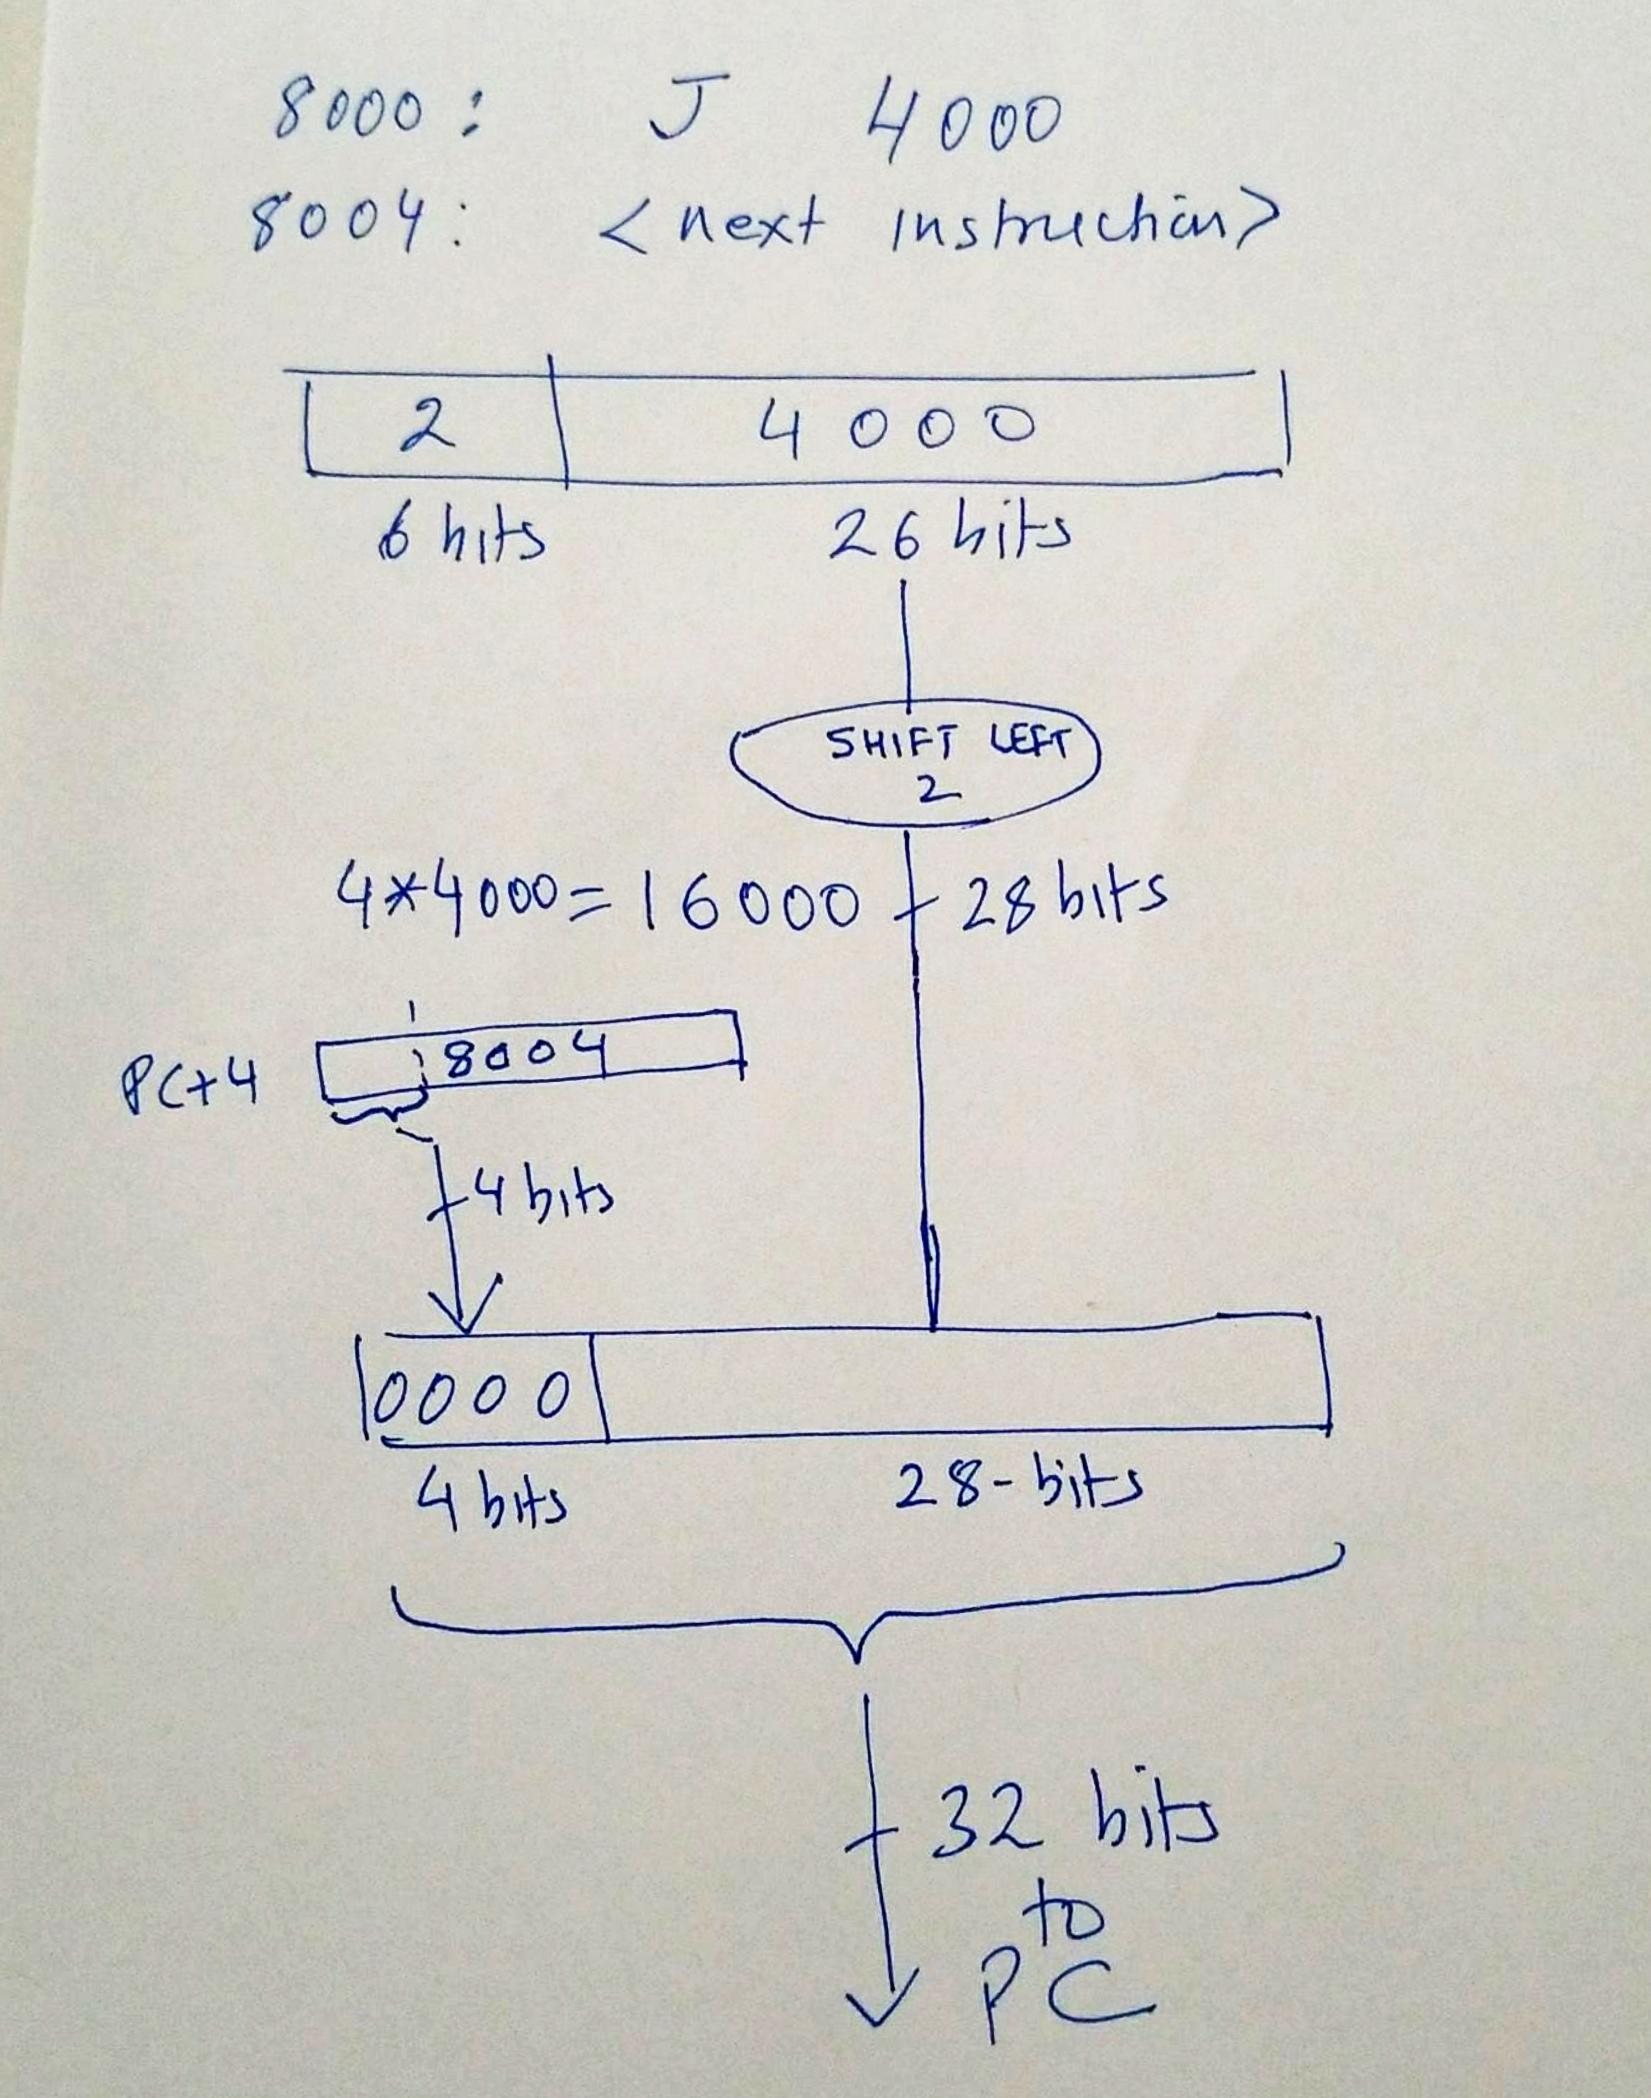 8000: J 4000
8004: <next instruction>
2 4000
6 bits 26 bits
SHIFT LEFT
2
4*4000=16000 28 bits
PC+4 8004
4 bits
0000
4 bits 28-bits
32 bits
to
PC